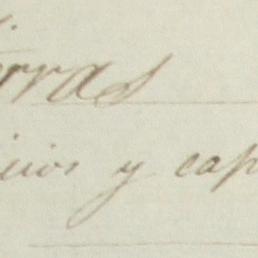 rras
icios y cap